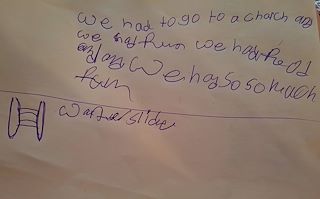 We had to go to a church and
we had fun we had
and We had So so much
fun
Water slide